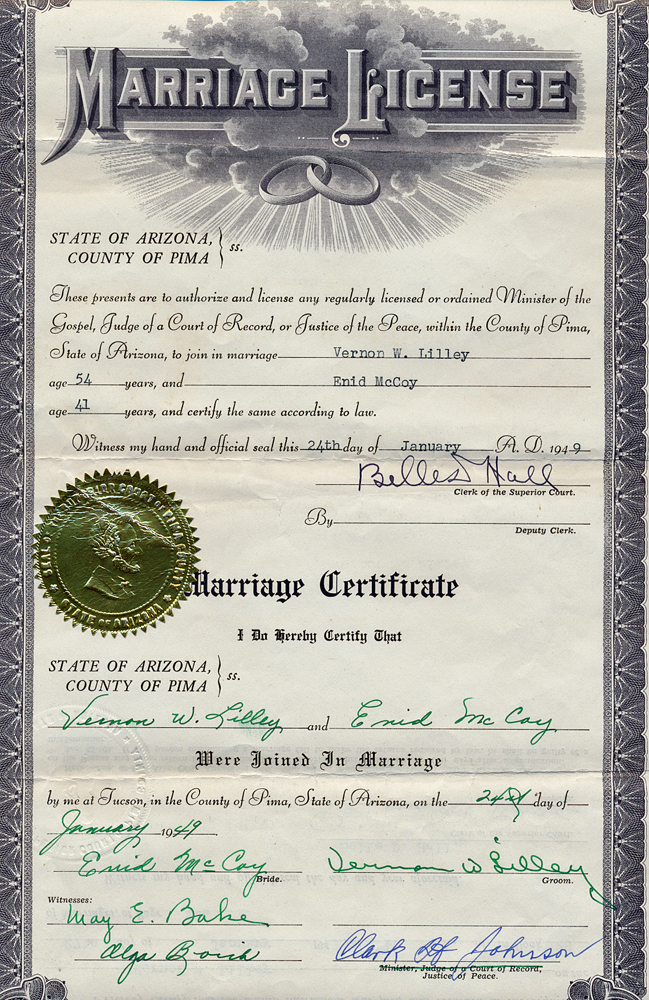 MARRIAGE LICENSE
STATE OF ARIZONA,
COUNTY OF PIMA } ss.
These presents are to authorize and license any regularly licensed or ordained Minister of the
Gospel, Judge of a Court of Record, or Justice of the Peace, within the County of Pima,
State of Arizona, to join in marriage Vernon W. Lilley
age 54 years, and Enid McCoy
age 41 years, and certify the same according to law.
Witness my hand and official seal this 24th day of January A. D. 1949
Hall
Clerk of the Superior Court.
By
Deputy Clerk.
SUPERIOR COURT OF PIMA COUNTY
STATE OF ARIZONA
Marriage Certificate
I Do Hereby Certify That
STATE OF ARIZONA,
COUNTY OF PIMA } ss.
Vernon W. Lilley and Enid McCoy
Were Joined In Marriage
by me at Tucson, in the County of Pima, State of Arizona, on the 24th day of
January 1949
Enid McCoy Vernon W Lilley
Bride. Groom.
Witnesses:
May E. Bake
Olga Clark H Johnson
Minister, Judge of a Court of Record,
Justice of Peace.